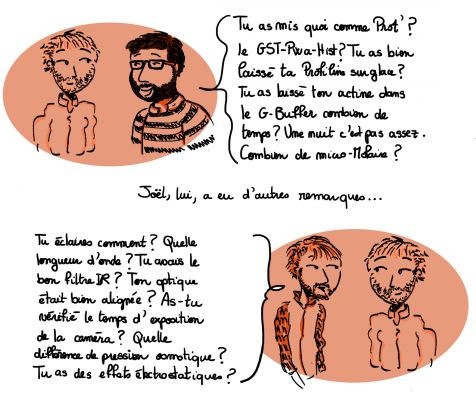 Tu as mis quoi comme Prot' ?
le GST-Rwa-Hist ? Tu as bien
laissé ta Profiline sur glace ?
Tu as laissé ton actine dans
le G-Buffer combien de
temps ? Une nuit c'est pas assez.
Combien de micro-Molaire ?
Joël, lui, a eu d'autres remarques...
Tu éclaires comment ? Quelle
longueur d'onde ? Tu avais le
bon filtre IR ? Ton optique
était bien alignée ? As-tu
vérifié le temps d'exposition
de la caméra ? Quelle
différence de pression osmotique ?
Tu as des effets électrostatiques ?